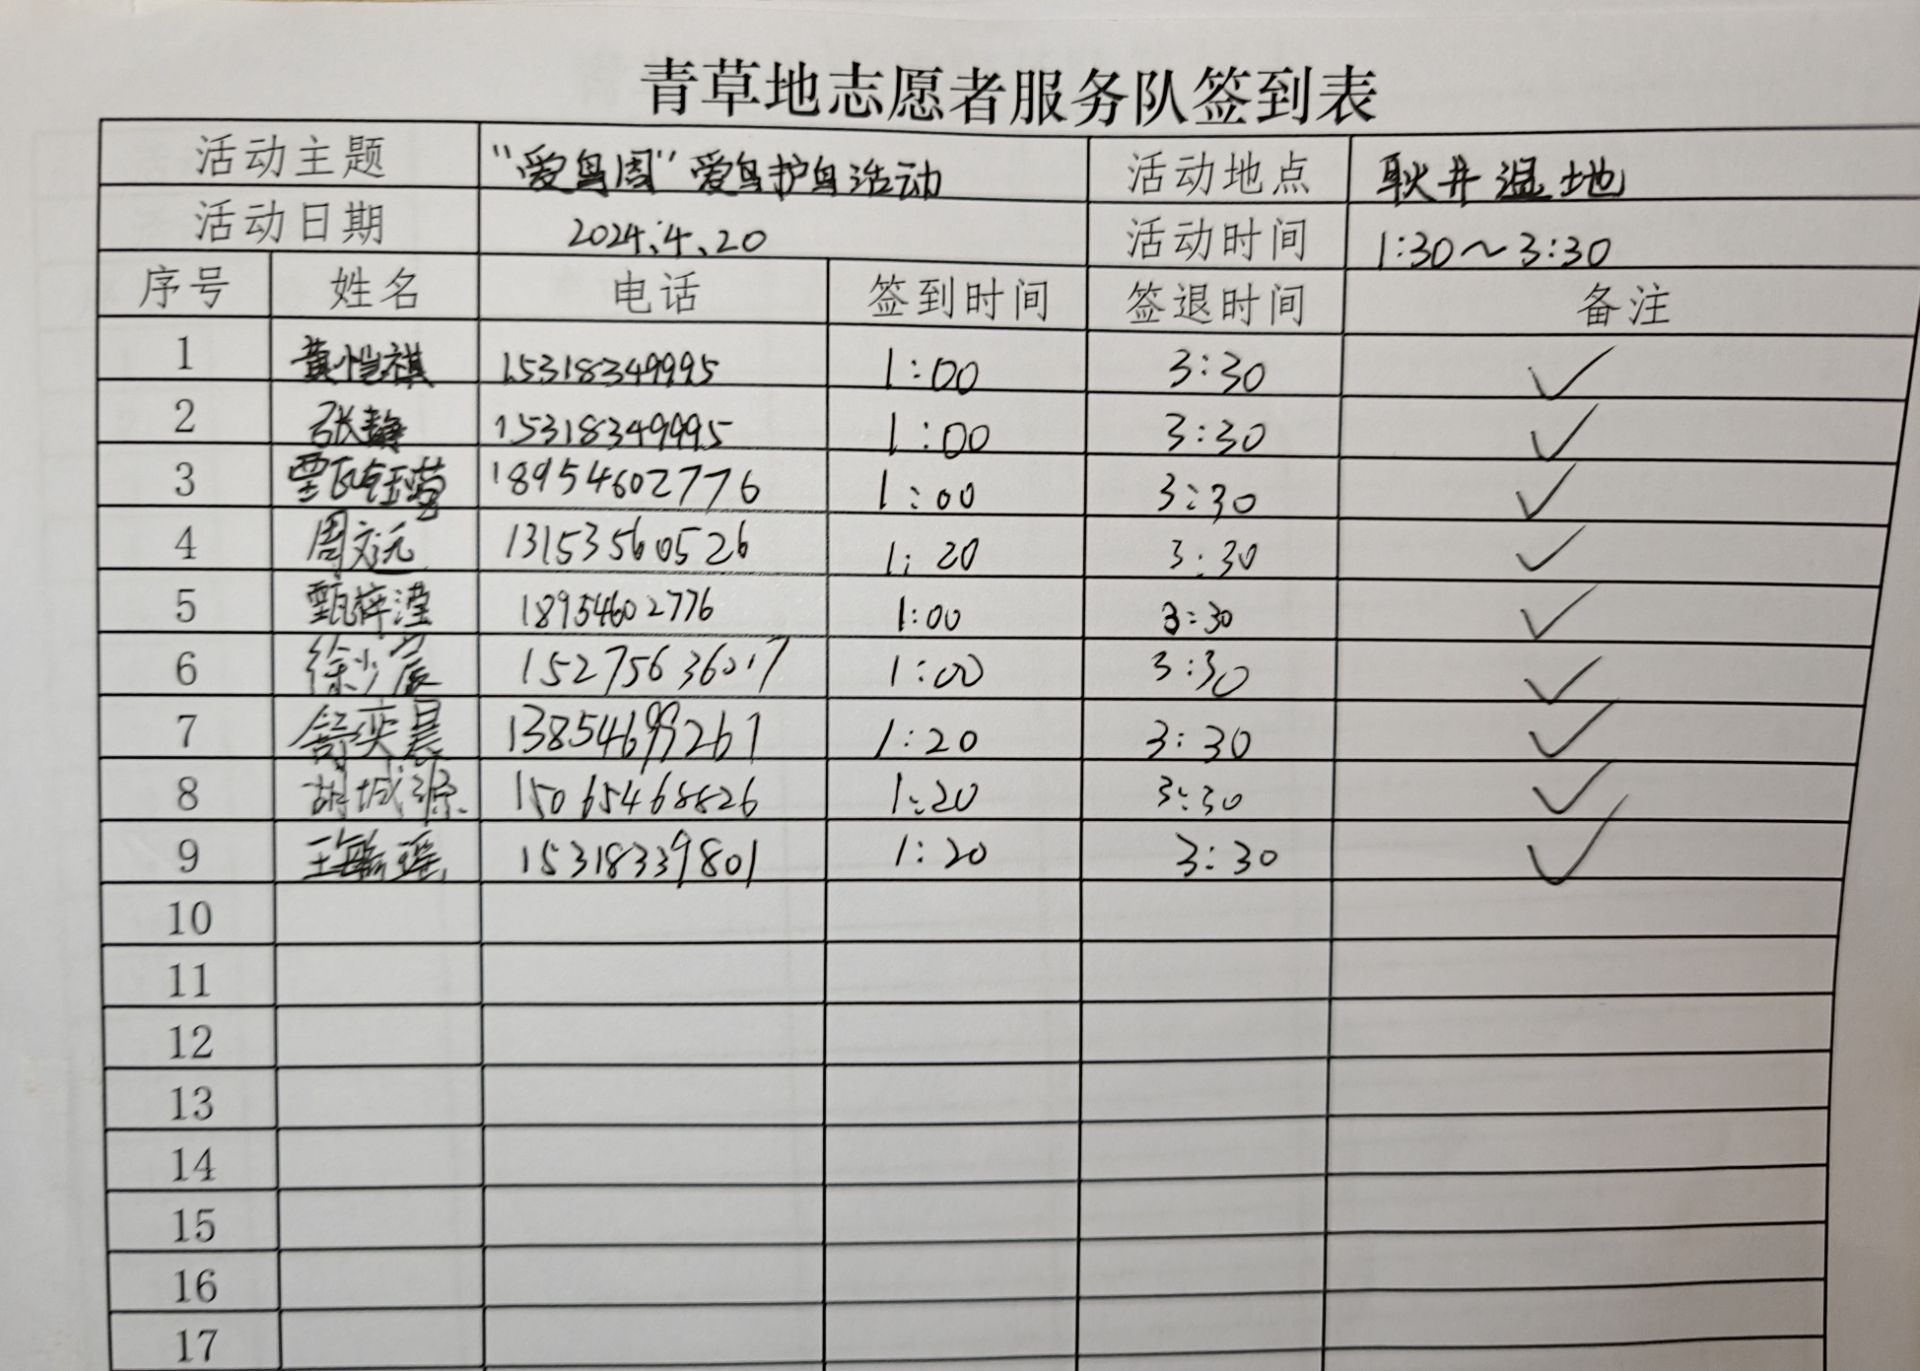 青草地志愿者服务队签到表
活动主题 “爱鸟周”爱鸟护鸟活动 活动地点 耿井湿地
活动日期 2024.4.20 活动时间 1:30～3:30
序号 姓名 电话 签到时间 签退时间 备注
1 黄恺祺 15318349995 1:00 3:30 ✓
2 张静 15318349995 1:00 3:30 ✓
3 18954602776 1:00 3:30 ✓
4 周文远 13153560526 1:20 3:30 ✓
5 甄梓滢 18954602776 1:00 3:30 ✓
6 徐少宸 15275636017 1:00 3:30 ✓
7 舒奕晨 13854699267 1:20 3:30 ✓
8 胡城源 15065468826 1:20 3:30 ✓
9 王 瑶 15318339801 1:20 3:30 ✓
10
11
12
13
14
15
16
17